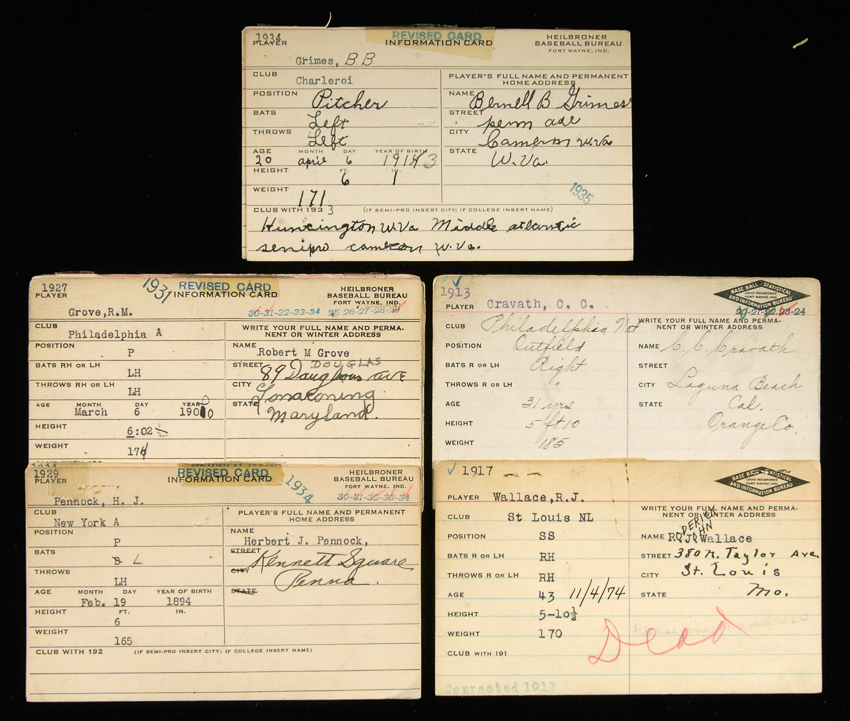 1934 REVISED CARD HEILBRONER
PLAYER INFORMATION CARD BASEBALL BUREAU
FORT WAYNE, IND.
Grimes, B B
CLUB PLAYER'S FULL NAME AND PERMANENT
Charleroi HOME ADDRESS
POSITION Pitcher NAME Bernell B Grimes
BATS Left STREET penn ave
THROWS Left CITY Cameron W.Va
AGE MONTH DAY YEAR OF BIRTH STATE W. Va.
20 april 6 1914 3
HEIGHT FT. IN.
6 1
WEIGHT 171 1935
CLUB WITH 193 3 (IF SEMI-PRO INSERT CITY; IF COLLEGE INSERT NAME)
Huntington W.Va Middle atlantic
semipro cameron W.Va.
1927 1931 REVISED CARD HEILBRONER
PLAYER INFORMATION CARD BASEBALL BUREAU
FORT WAYNE, IND.
Grove, R.M. 30-31-32-33-34
CLUB WRITE YOUR FULL NAME AND PERMA-
Philadelphia A NENT OR WINTER ADDRESS
POSITION NAME
P Robert M Grove
BATS RH OR LH STREET DOUGLAS
LH 89 AVE
THROWS R OR LH CITY Lonaconing
LH
AGE MONTH DAY YEAR STATE Maryland.
March 6 1900
HEIGHT
6:02
WEIGHT
174
1913
PLAYER Cravath, C. C. BASE BALL STATISTICAL
LOUIS HEILBRONER
AND INFORMATION BUREAU
20-21-22-23-24
CLUB Philadelphia Nat WRITE YOUR FULL NAME AND PERMA-
NENT OR WINTER ADDRESS
POSITION Outfield NAME C. C. Cravath
BATS R OR LH Right STREET
THROWS R OR LH " CITY Laguna Beach
AGE 31 yrs STATE Cal.
HEIGHT 5 ft 10 Orange Co.
WEIGHT 185
1929 REVISED CARD 1934 HEILBRONER
PLAYER INFORMATION CARD BASEBALL BUREAU
FORT WAYNE, IND.
Pennock, H. J. 30-31-32-33-34
CLUB PLAYER'S FULL NAME AND PERMANENT
New York A HOME ADDRESS
POSITION NAME
P Herbert J. Pennock,
BATS STREET
B L Kennett Square
THROWS CITY
LH Penna.
AGE MONTH DAY YEAR OF BIRTH STATE
Feb. 19 1894
HEIGHT FT. IN.
6
WEIGHT
165
CLUB WITH 192 (IF SEMI-PRO INSERT CITY; IF COLLEGE INSERT NAME)
1917
BASE BALL STATISTICAL
LOUIS HEILBRONER
AND INFORMATION BUREAU
PLAYER Wallace, R.J. WRITE YOUR FULL NAME AND PERMA-
CLUB St Louis NL NENT OR WINTER ADDRESS
POSITION SS NAME R. J. Wallace
JOHN
BATS R OR LH RH STREET 380 N. Taylor Ave
THROWS R OR LH RH CITY St. Louis
AGE 43 11/4/74 STATE Mo.
HEIGHT 5-10½
WEIGHT 170 Dead
CLUB WITH 191
Corrected 1917